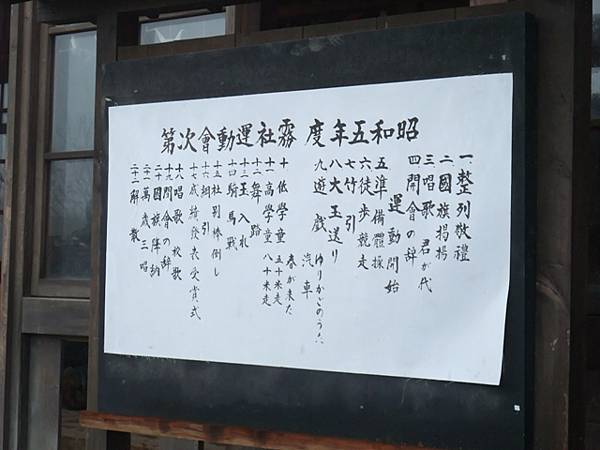 昭和五年度霧社運動會次第
一、整列敬禮
二、國旗掲揚
三、唱歌 君が代
四、開會の辞
運動開始
五準備體操
六徒歩競走
七竹引
八大玉送り
九遊戯 ゆりかごのうた
汽車
春が来た
十低學童 五十米走
十一高學童 八十米走
十二舞踏
十三玉入れ
十四騎馬戦
十五社別棒倒し
十六綱引
十七成績發表受賞式
十八唱歌 校歌
十九閉會の辞
二十國旗降納
二十一萬歳三唱
二十二解散